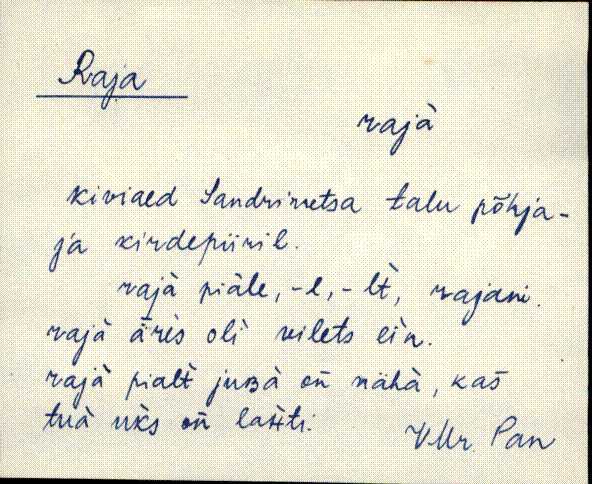 Raja
rajà
kiviaed Sandrimetsa talu põhja-
ja kirdepiiril.
rajà piäle, -l, -lt̀, rajani.
rajà äris oli vilets ein.
rajà pialt̀ juʙà on nähà, kas
tuà uks on lahti.
VMr Pan